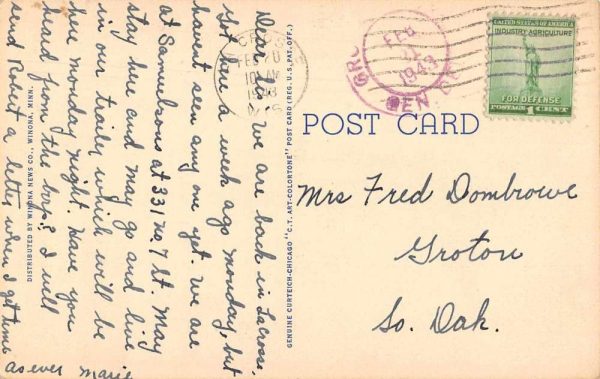 Dear Sis: We are back in LaCrosse.
Got here a week ago Monday, but
havent seen any one yet. We are
at Samuelsons at 331 No. 7 St. May
stay here and may go and live
in our trailer, which will be
here Monday night. Have you
heard from the boys? I will
send Robert a letter when I get time
as ever Marie
DISTRIBUTED BY WINONA NEWS CO., WINONA, MINN.
GENUINE CURTEICH-CHICAGO "C.T. ART-COLORTONE" POST CARD (REG. U.S. PAT. OFF.)
FEB
1943
WIS
GRO
FEB
11
1943
UNITED STATES OF AMERICA
INDUSTRY AGRICULTURE
FOR DEFENSE
POSTAGE 1 CENT
POST CARD
Mrs Fred Dombrowe
Groton
So. Dak.